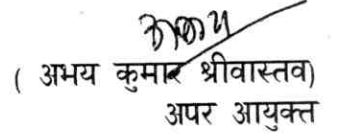 अभय
( अभय कुमार श्रीवास्तव)
अपर आयुक्त